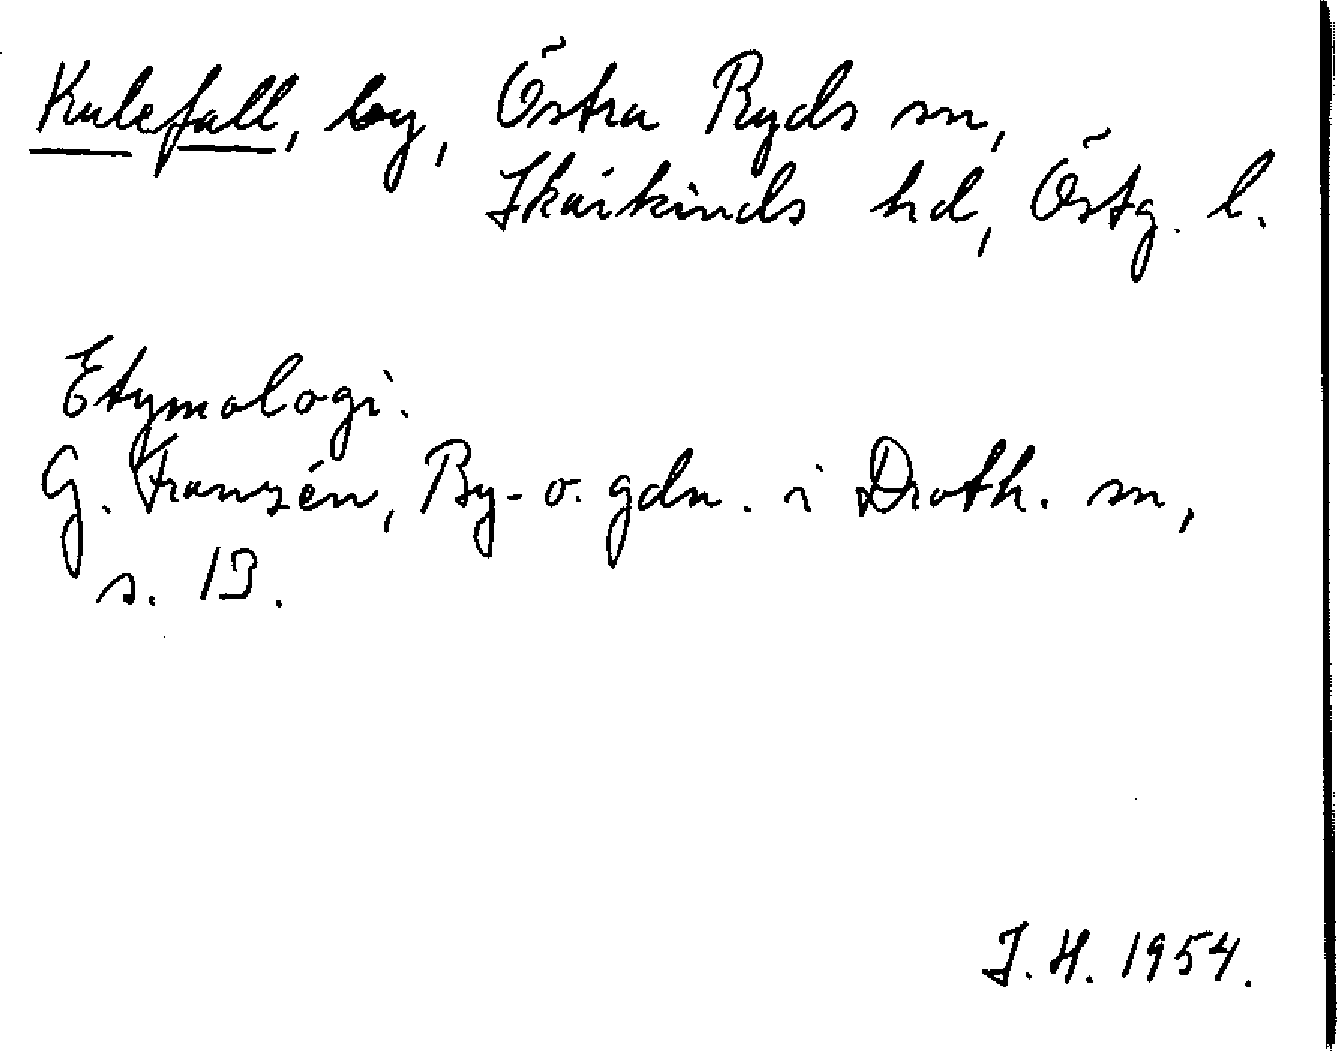 Kulefall, by, Östra Ryds sn,
Skärkinds hd, Östg. l.
Etymologi.
G. Franzén, By- o. gdn. i Droth. sn,
s. 13.
J. H. 1954.